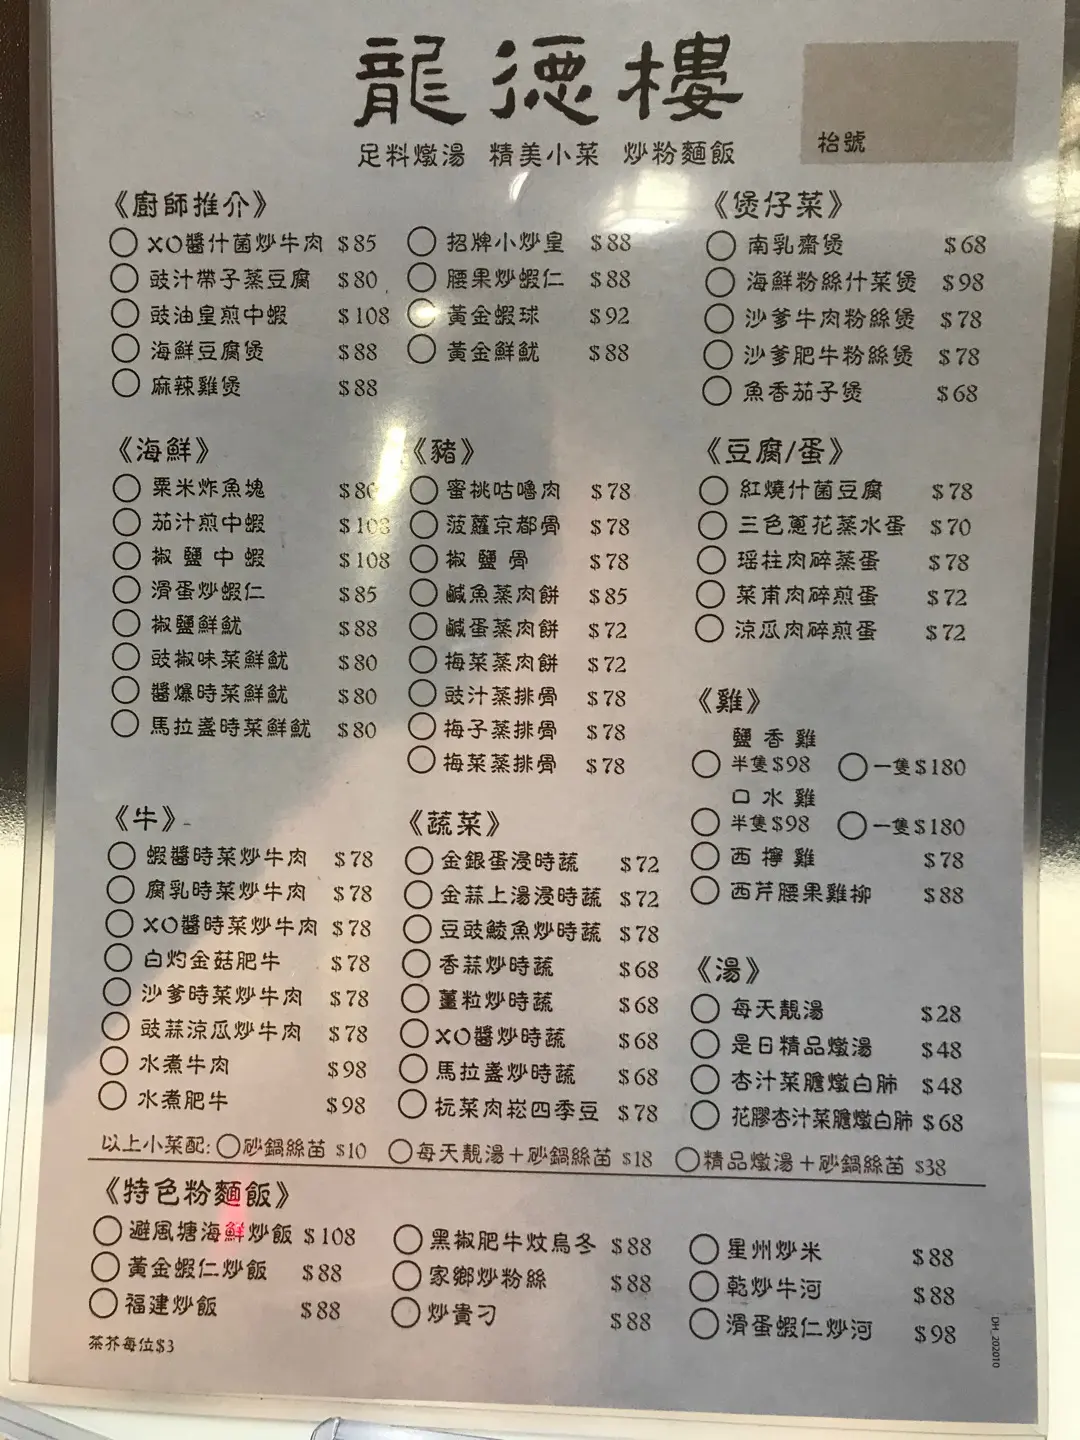 龍德樓
足料燉湯 精美小菜 炒粉麵飯
枱號
《廚師推介》
XO醬什菌炒牛肉 $85
豉汁帶子蒸豆腐 $80
豉油皇煎中蝦 $108
海鮮豆腐煲 $88
麻辣雞煲 $88
招牌小炒皇 $88
腰果炒蝦仁 $88
黃金蝦球 $92
黃金鮮魷 $88
《煲仔菜》
南乳齋煲 $68
海鮮粉絲什菜煲 $98
沙爹牛肉粉絲煲 $78
沙爹肥牛粉絲煲 $78
魚香茄子煲 $68
《海鮮》
粟米炸魚塊 $80
茄汁煎中蝦 $108
椒鹽中蝦 $108
滑蛋炒蝦仁 $85
椒鹽鮮魷 $88
豉椒味菜鮮魷 $80
醬爆時菜鮮魷 $80
馬拉盞時菜鮮魷 $80
《豬》
蜜桃咕嚕肉 $78
菠蘿京都骨 $78
椒鹽骨 $78
鹹魚蒸肉餅 $85
鹹蛋蒸肉餅 $72
梅菜蒸肉餅 $72
豉汁蒸排骨 $78
梅子蒸排骨 $78
梅菜蒸排骨 $78
《豆腐/蛋》
紅燒什菌豆腐 $78
三色蔥花蒸水蛋 $70
瑶柱肉碎蒸蛋 $78
菜甫肉碎煎蛋 $72
涼瓜肉碎煎蛋 $72
《雞》
鹽香雞
半隻$98 一隻$180
口水雞
半隻$98 一隻$180
西檸雞 $78
西芹腰果雞柳 $88
《牛》
蝦醬時菜炒牛肉 $78
腐乳時菜炒牛肉 $78
XO醬時菜炒牛肉 $78
白灼金菇肥牛 $78
沙爹時菜炒牛肉 $78
豉蒜涼瓜炒牛肉 $78
水煮牛肉 $98
水煮肥牛 $98
《蔬菜》
金銀蛋浸時蔬 $72
金蒜上湯浸時蔬 $72
豆豉鯪魚炒時蔬 $78
香蒜炒時蔬 $68
薑粒炒時蔬 $68
XO醬炒時蔬 $68
馬拉盞炒時蔬 $68
抗菜肉崧四季豆 $78
《湯》
每天靚湯 $28
是日精品燉湯 $48
杏汁菜膽燉白肺 $48
花膠杏汁菜膽燉白肺 $68
以上小菜配: 砂鍋絲苗 $10 每天靚湯+砂鍋絲苗 $18 精品燉湯+砂鍋絲苗 $38
《特色粉麵飯》
避風塘海鮮炒飯 $108
黃金蝦仁炒飯 $88
福建炒飯 $88
黑椒肥牛炆烏冬 $88
家鄉炒粉絲 $88
炒貴刁 $88
星州炒米 $88
乾炒牛河 $88
滑蛋蝦仁炒河 $98
茶芥每位$3
DH_202010